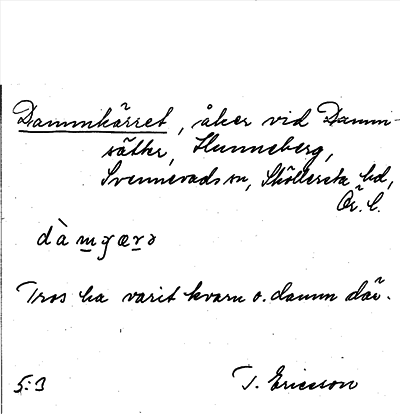 Dammkärret, åker vid Damm-
sätter, Hunneberg,
Svennevads sn, Sköllersta hd,
Ör. l.
dàmɟærə
Tros ha varit kvarn o. damm där.
5:3 T. Ericsson